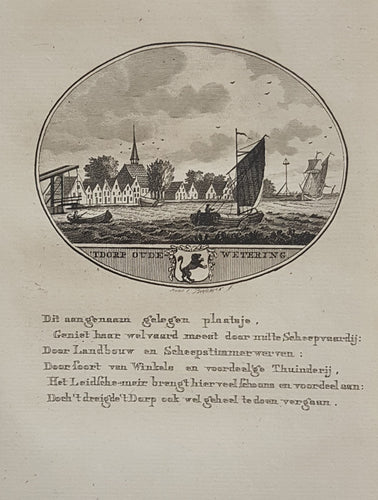 TDORP OUDE-WETERING.
Dit aangenaam gelegen plaatsje,
Geniet haar welvaard meest door nutte Scheepvaardij;
Door Landbouw en Scheepstimmerwerven:
Door foort van Winkels en voordeelge Thuinderij,
Het Leidsche-meir brengt hier veel schoons en voordeel aan:
Doch 't dreigde 't Dorp ook wel geheel te doen vergaan.